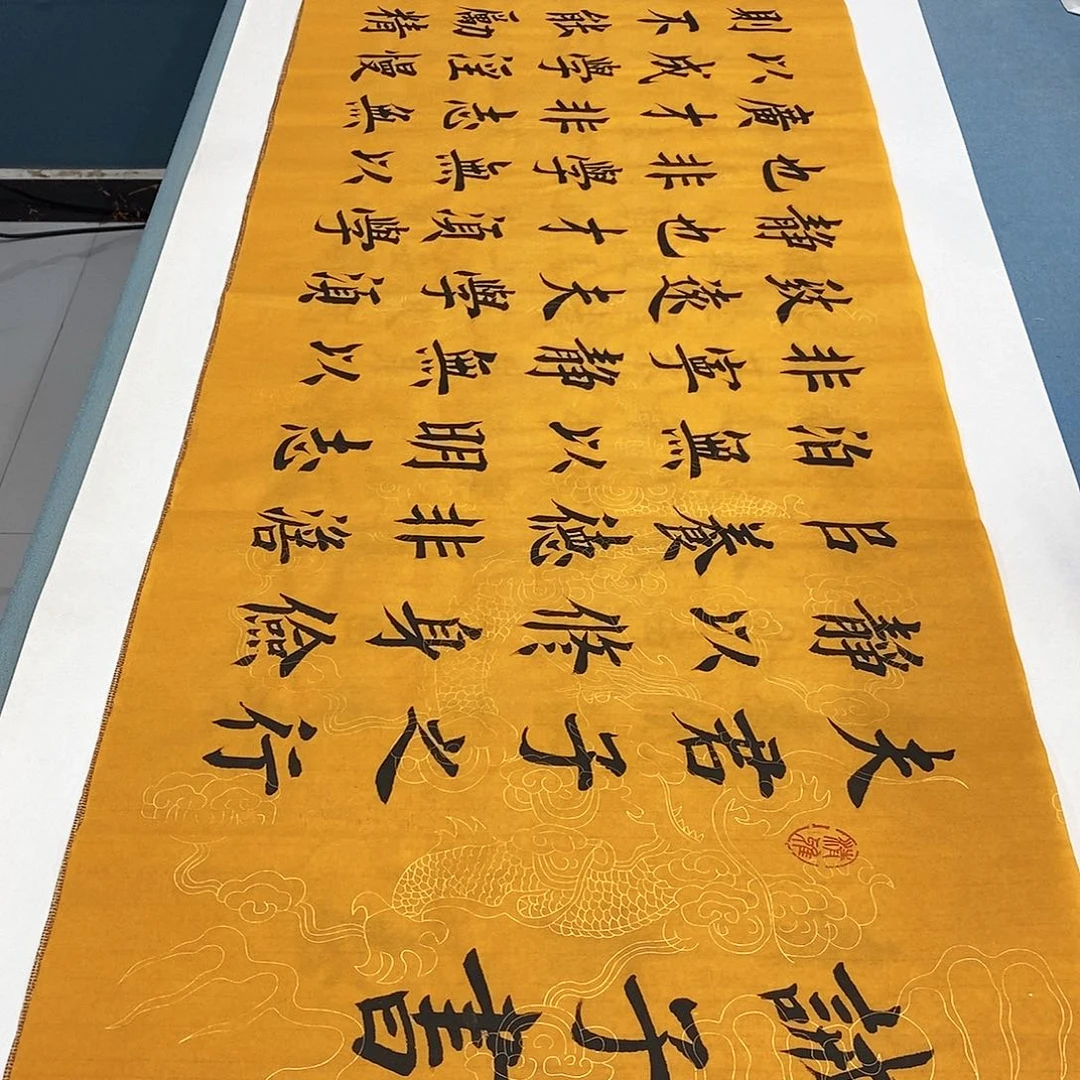 誡子書
夫君子之行
静以修身儉
㠯養德非澹
泊無以明志
非寧静無以
致遠夫學須
静也才須學
也非學無以
廣才非志無
以成學淫慢
則不能勵精